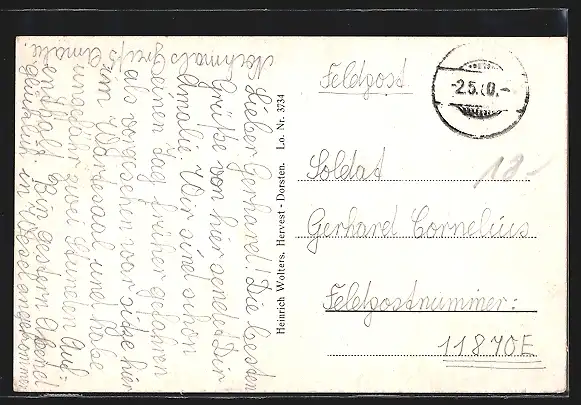 Lieber Gerhard! Die besten
Grüße von hier sendet Dir
Amalie. Wir sind schon
einen Tag früher gefahren
als vorgesehen war sitze hier
im Wartesaal und habe
ungefähr zwei Stunden Auf-
enthalt. Bin gestern Abend
glücklich in Wesel angekommen
Nochmals Gruß Amalie
Heinrich Wolters, Hervest-Dorsten. Lo. Nr. 3734
Feldpost
-2.5.40.-
18-
Soldat
Gerhard Cornelius
Feldpostnummer:
11870E